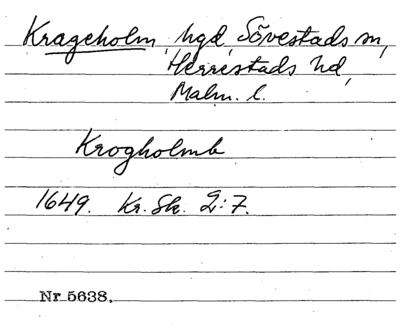 Krageholm, hgd, Sövestads sn,
Herrestads hd,
Malm. l.
Krogholmb
1649. Kr. Sk. 2:7.
Nr 5638.